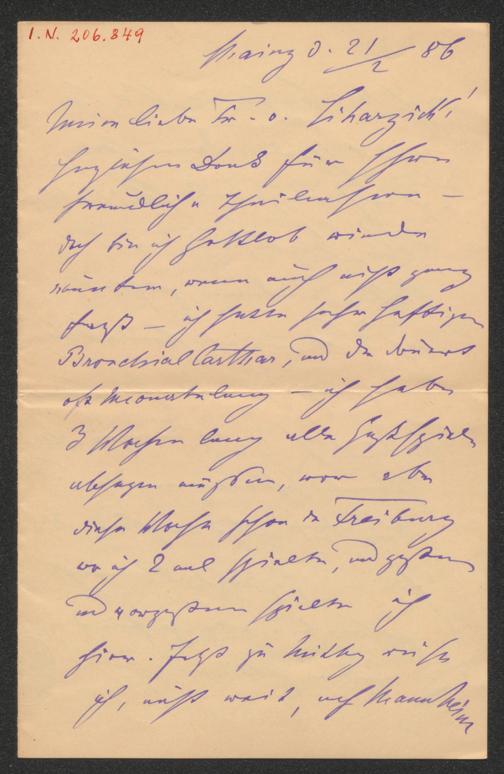 I.N. 206.849
Mainz d. 21/2 86
Meine liebe Fr. v. Liharzick!
Herzlichen Dank für Ihre
freundliche Theilnahme —
doch bin ich Gottlob wieder
munter, wenn auch nicht ganz
fest — ich hatte sehr heftigen
Bronchial Carthar, und da dauert
oft Monatelang — ich habe
3 Wochen lang alle Gastspiele
absagen müssen, war aber
diese Woche schon in Freiburg
wo ich 2 mal spielte, und gestern
und vorgestern spielte ich
hier. Jetzt zu Mittag reise
ich, nicht weit, nach Mannheim